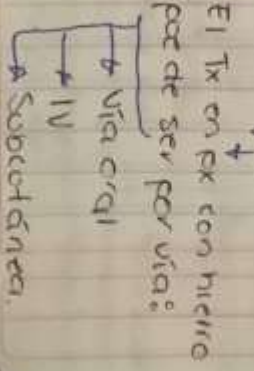 El Tx en px con hierro ↓
pde de ser por vía:
→ Vía oral
→ IV
→ Subcutánea.